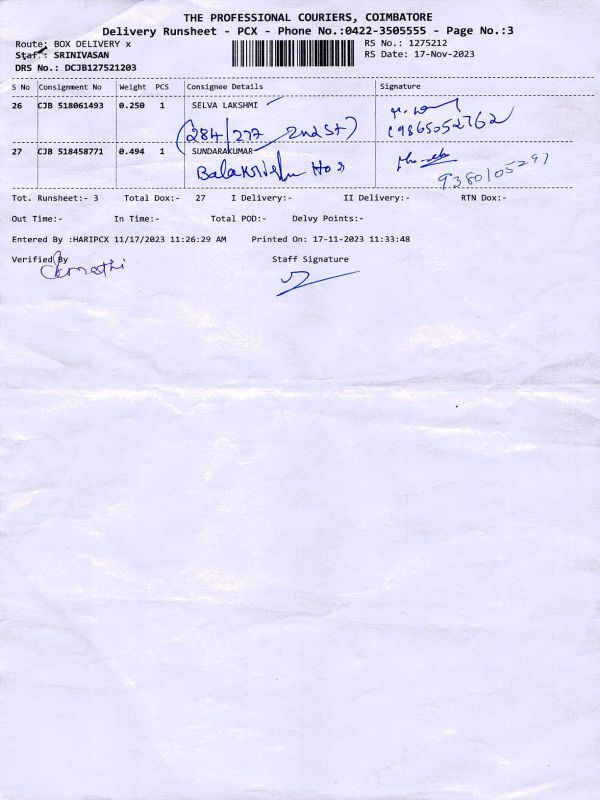 THE PROFESSIONAL COURIERS, COIMBATORE
Delivery Runsheet - PCX - Phone No.:0422-3505555 - Page No.:3
Route: BOX DELIVERY x
RS No.: 1275212
Staff: SRINIVASAN
RS Date: 17-Nov-2023
DRS No.: DCJB127521203
S No Consignment No Weight PCS Consignee Details Signature
26 CJB 518061493 0.250 1 SELVA LAKSHMI
(284/277 2nd St) 9865052762
27 CJB 518458771 0.494 1 SUNDARAKUMAR
Balakrishn Hos 9380105291
Tot. Runsheet:- 3 Total Dox:- 27 I Delivery:- II Delivery:- RTN Dox:-
Out Time:- In Time:- Total POD:- Delvy Points:-
Entered By :HARIPCX 11/17/2023 11:26:29 AM Printed On: 17-11-2023 11:33:48
Verified By Staff Signature